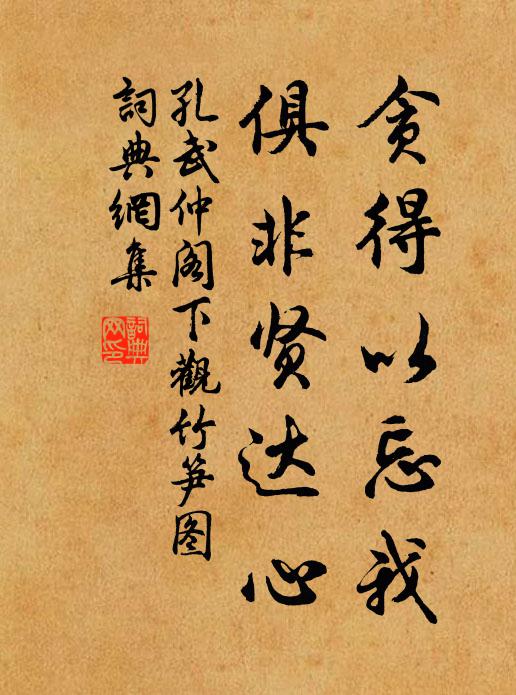 贪得以忘我
俱非贤达心
孔武仲阁下觀竹笋图
詞典網集
詞典
网印